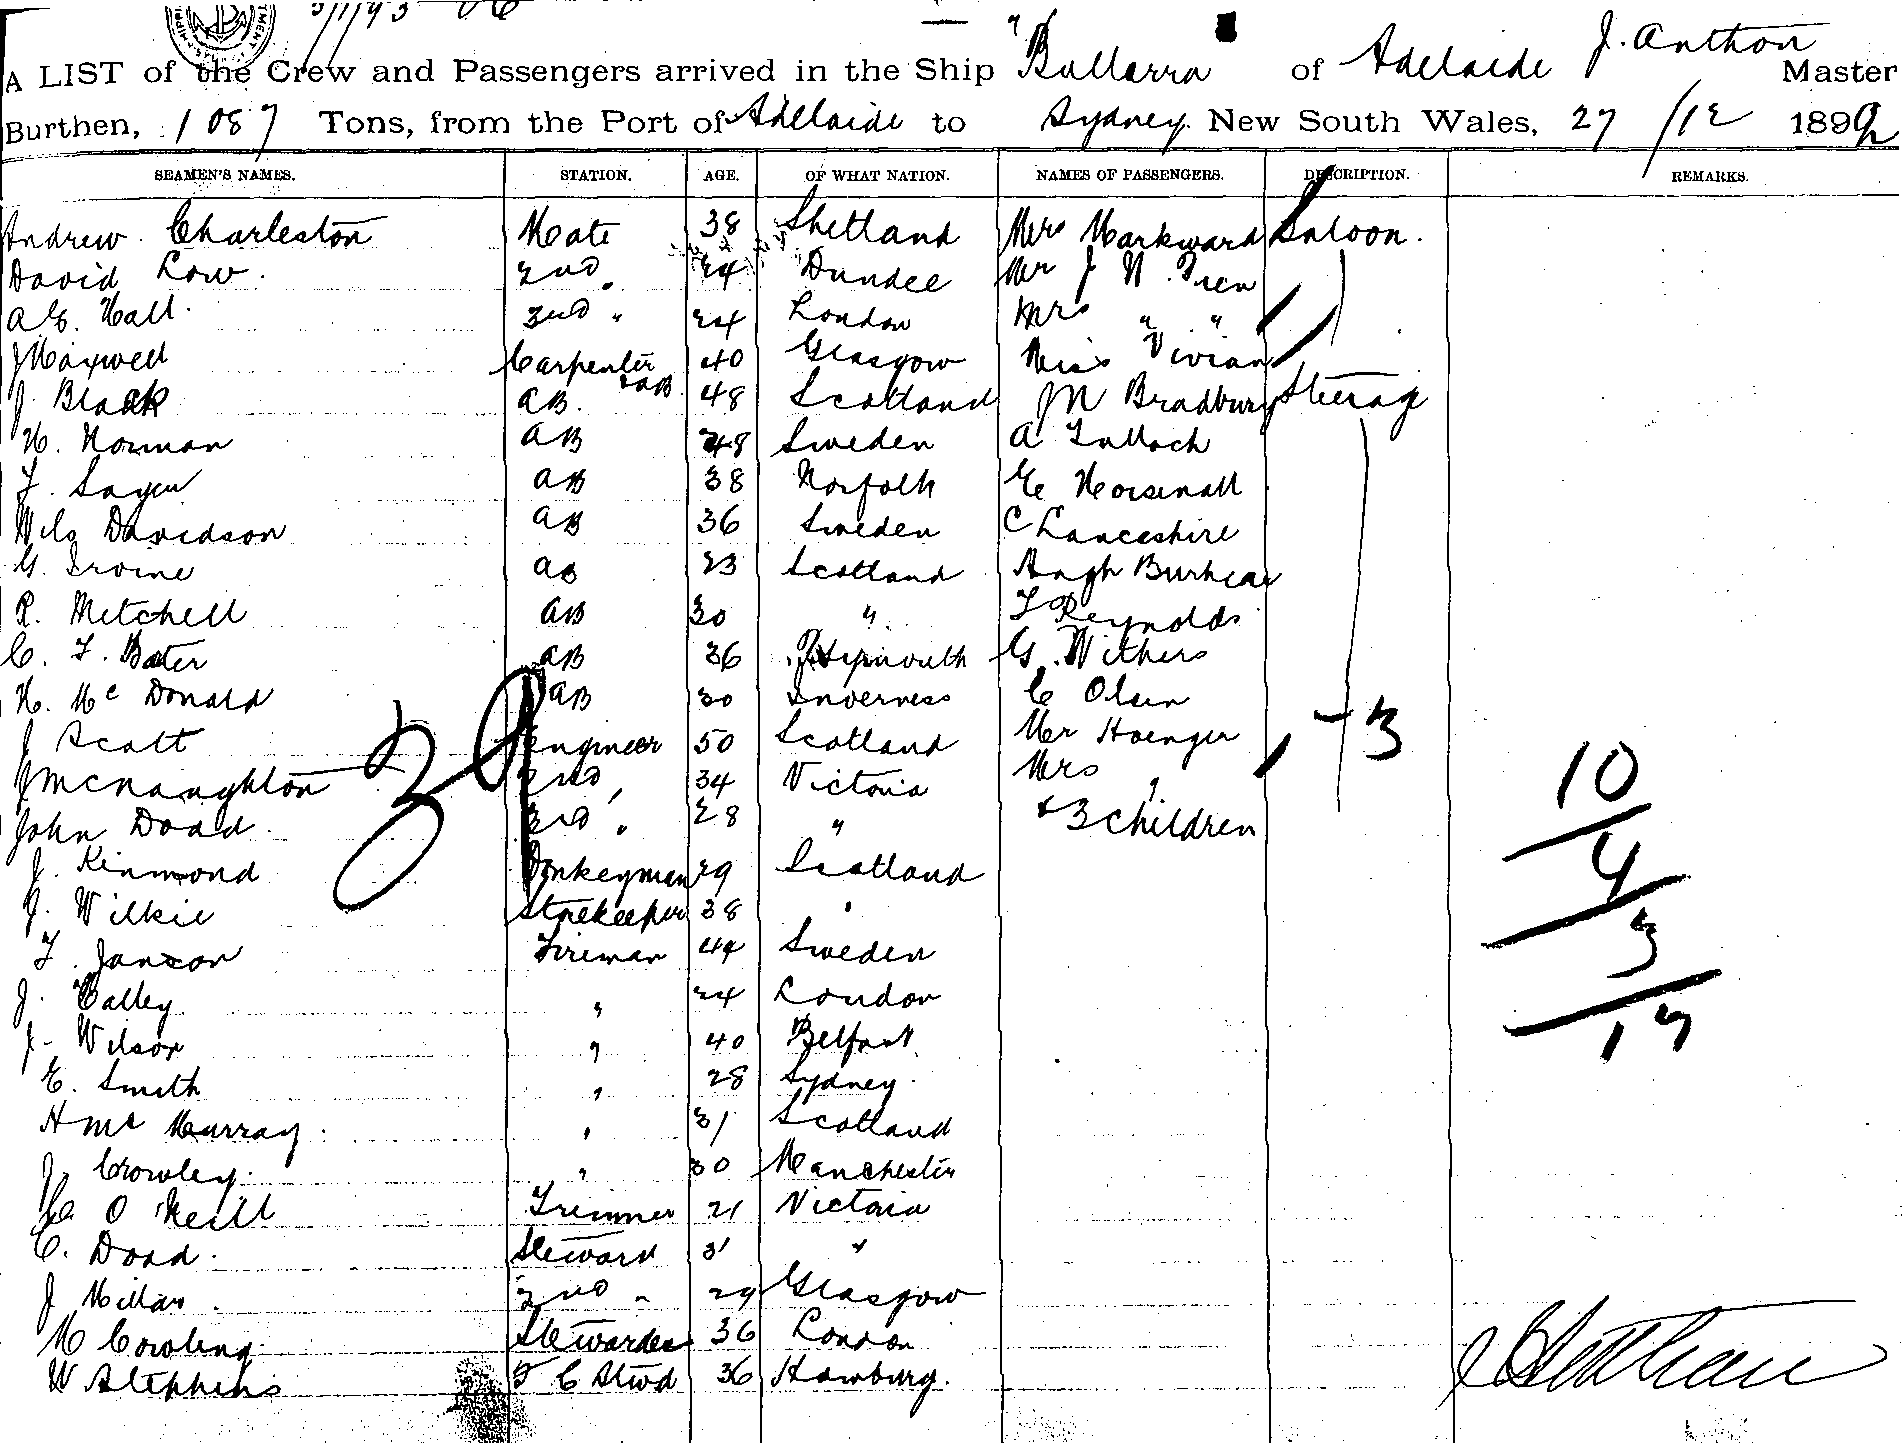 3/1/93
A LIST of the Crew and Passengers arrived in the Ship "Bullarra" of Adelaide J. Anthon Master
Burthen, 1087 Tons, from the Port of Adelaide to Sydney New South Wales, 27/12 1892
SEAMEN'S NAMES. STATION. AGE. OF WHAT NATION. NAMES OF PASSENGERS. DESCRIPTION. REMARKS.
Andrew Charleston Mate 38 Shetland Mrs Markward Saloon.
David Low 2nd " 24 Dundee Mr J H
A E. Hall 3rd " 24 London Mrs " "
J Maxwell Carpenter & AB 40 Glasgow Miss Vivian
J. Black AB. 48 Scotland J M Bradbury Steerage
H. Norman AB 48 Sweden A Tulloch
F. AB 38 Norfolk E Horsenall
Nils Davidson AB 36 Sweden C Lancashire
G. Irvine AB 23 Scotland Hugh
R. Mitchell AB 30 " T Reynolds
C. F. Bater AB 36 Plymouth G. Withers
H. Mc Donald AB 30 Inverness C Olsen
J Scott Engineer 50 Scotland Mr Hoenger - 3
J McNaughton 2nd " 34 Victoria Mrs "
John Doad 3rd " 28 " & 3 children
39
J. Kinmond Donkeyman 29 Scotland
J. Wilkie Storekeeper 38 "
F. Janson Fireman 44 Sweden
J. Balley " 24 London
J. Wilson " 40 Belfast
E. Smith " 28 Sydney
H Mc Murray " 31 Scotland
J. Crowley " 30 Manchester
C. O'Neill Trimmer 21 Victoria
C. Doad Steward 31 "
J Millar 2nd " 29 Glasgow
M Cowling Stewardess 36 London
W Stephens F C Stwd 36 Hamburg.
10
4
3
17